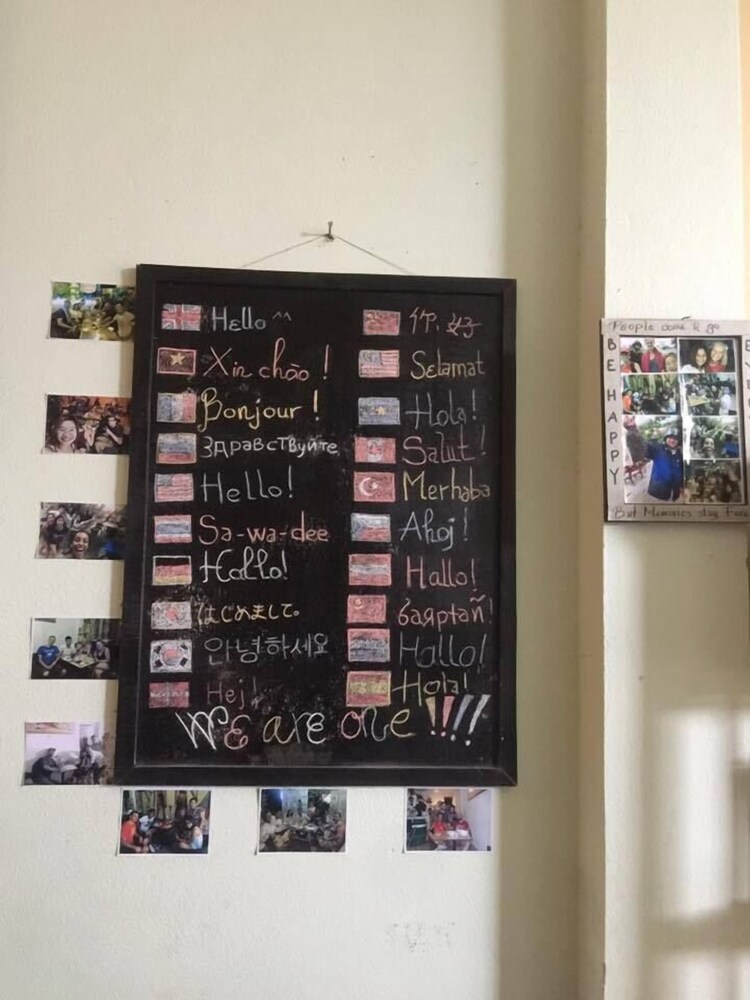 Hello ^^
Xin chào !
Bonjour !
Здравствуйте
Hello!
Sa-wa-dee
Hallo!
はじめまして。
안녕하세요
Hej!
你好
Selamat
Hola!
Salut!
Merhaba
Ahoj!
Hallo!
Hallo!
Hola!
We are one !!!!
People come & go
BE HAPPY
But Memories stay